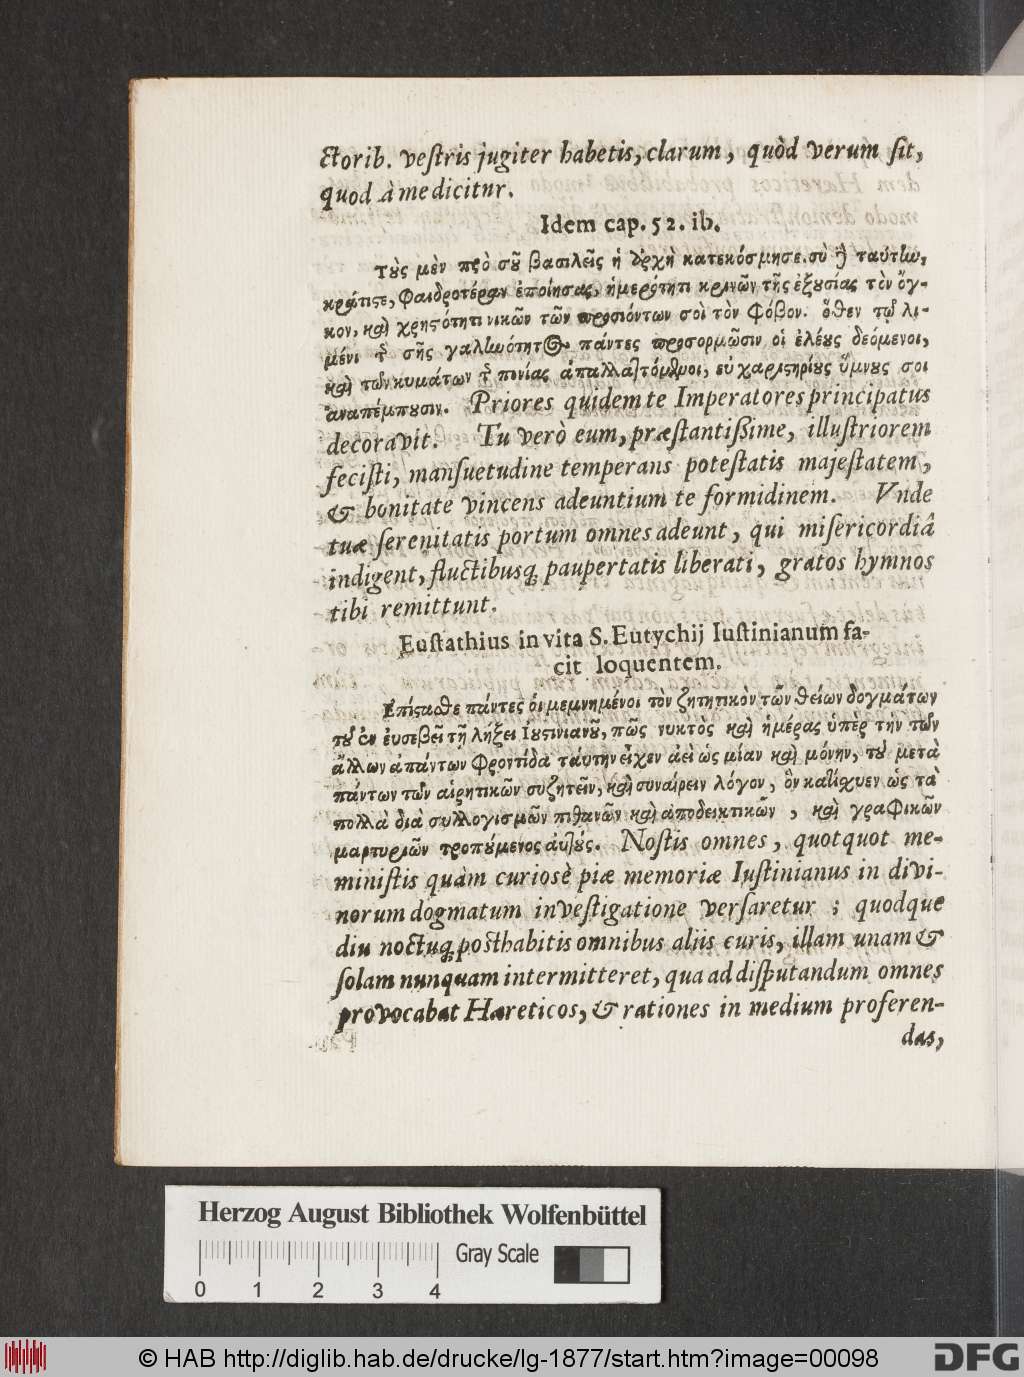 ctorib. vestris jugiter habetis, clarum, quòd verum sit,
quod à me dicitnr.
Idem cap. 52. ib.
Τοὺς μὲν πρὸ σοῦ βασιλεῖς ἡ ἀρχὴ κατεκόσμησε. σὺ δὲ ταύτην,
κράτιστε, φαιδροτέραν ἐποίησας, ἡμερότητι κρινῶν τῆς ἐξουσίας τὸν ὄγ-
κον, καὶ χρηστότητι νικῶν τῶν προσιόντων σοὶ τὸν φόβον. ὅθεν τῷ λι-
μένι τῆς σῆς γαληνότητος πάντες προσορμῶσιν οἱ ἐλέους δεόμενοι,
καὶ τῶν κυμάτων τῆς πενίας ἀπαλλαττόμενοι, εὐχαριστηρίους ὕμνους σοι
ἀναπέμπουσιν. Priores quidem te Imperatores principatus
decoravit. Tu verò eum, præstantissime, illustriorem
fecisti, mansuetudine temperans potestatis majestatem,
& bonitate vincens adeuntium te formidinem. Vnde
tuæ serenitatis portum omnes adeunt, qui misericordiâ
indigent, fluctibusq; paupertatis liberati, gratos hymnos
tibi remittunt.
Eustathius in vita S. Eutychij Iustinianum fa-
cit loquentem.
Ἐπίστασθε πάντες οἱ μεμνημένοι τὸν ζητητικὸν τῶν θείων δογμάτων
τοῦ ἐν εὐσεβεῖ τῇ λήξει Ἰουστινιανοῦ, πῶς νυκτὸς καὶ ἡμέρας ὑπὲρ τὴν τῶν
ἄλλων ἁπάντων φροντίδα ταύτην εἶχεν ἀεὶ ὡς μίαν καὶ μόνην, τοῦ μετὰ
πάντων τῶν αἱρητικῶν συζητεῖν, καὶ συναίρειν λόγον, ὃν κατίσχυεν ὡς τὰ
πολλὰ διὰ συλλογισμῶν πιθανῶν καὶ ἀποδεικτικῶν, καὶ γραφικῶν
μαρτυριῶν τροπούμενος αὐτούς. Nostis omnes, quotquot me-
ministis quàm curiosè piæ memoriæ Iustinianus in divi-
norum dogmatum investigatione versaretur; quodque
diu noctuq; posthabitis omnibus aliis curis, illam unam &
solam nunquam intermitteret, qua ad disputandum omnes
provocabat Hæreticos, & rationes in medium proferen-
das,
Herzog August Bibliothek Wolfenbüttel
Gray Scale
0 1 2 3 4
© HAB http://diglib.hab.de/drucke/lg-1877/start.htm?image=00098
DFG